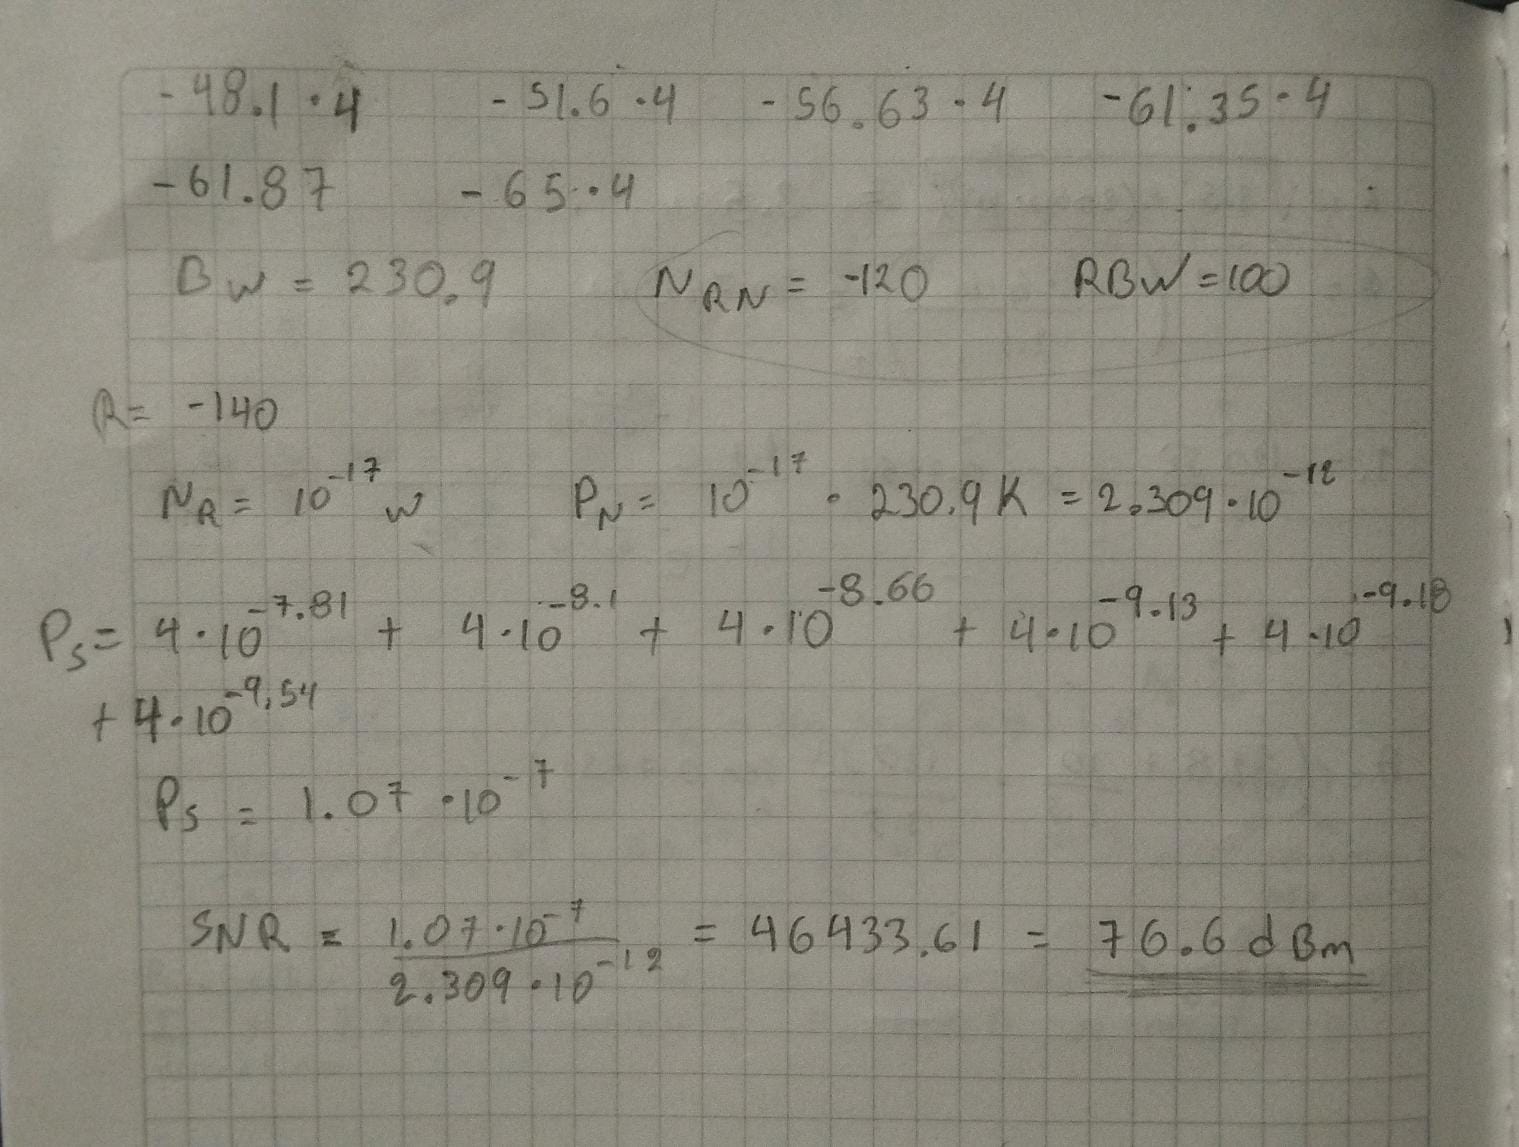 -48.1 · 4   -51.6 · 4   -56.63 · 4   -61.35 · 4
-61.87   -65 · 4
BW = 230.9   N_RN = -120   RBW = 100
R = -140
N_R = 10^-17 W   P_N = 10^-17 · 230.9K = 2.309 · 10^-12
P_S = 4 · 10^-7.81 + 4 · 10^-8.1 + 4 · 10^-8.66 + 4 · 10^-9.13 + 4 · 10^-9.18
+ 4 · 10^-9.54
P_S = 1.07 · 10^-7
SNR = 1.07 · 10^-7 / 2.309 · 10^-12 = 46433.61 = 76.6 dBm